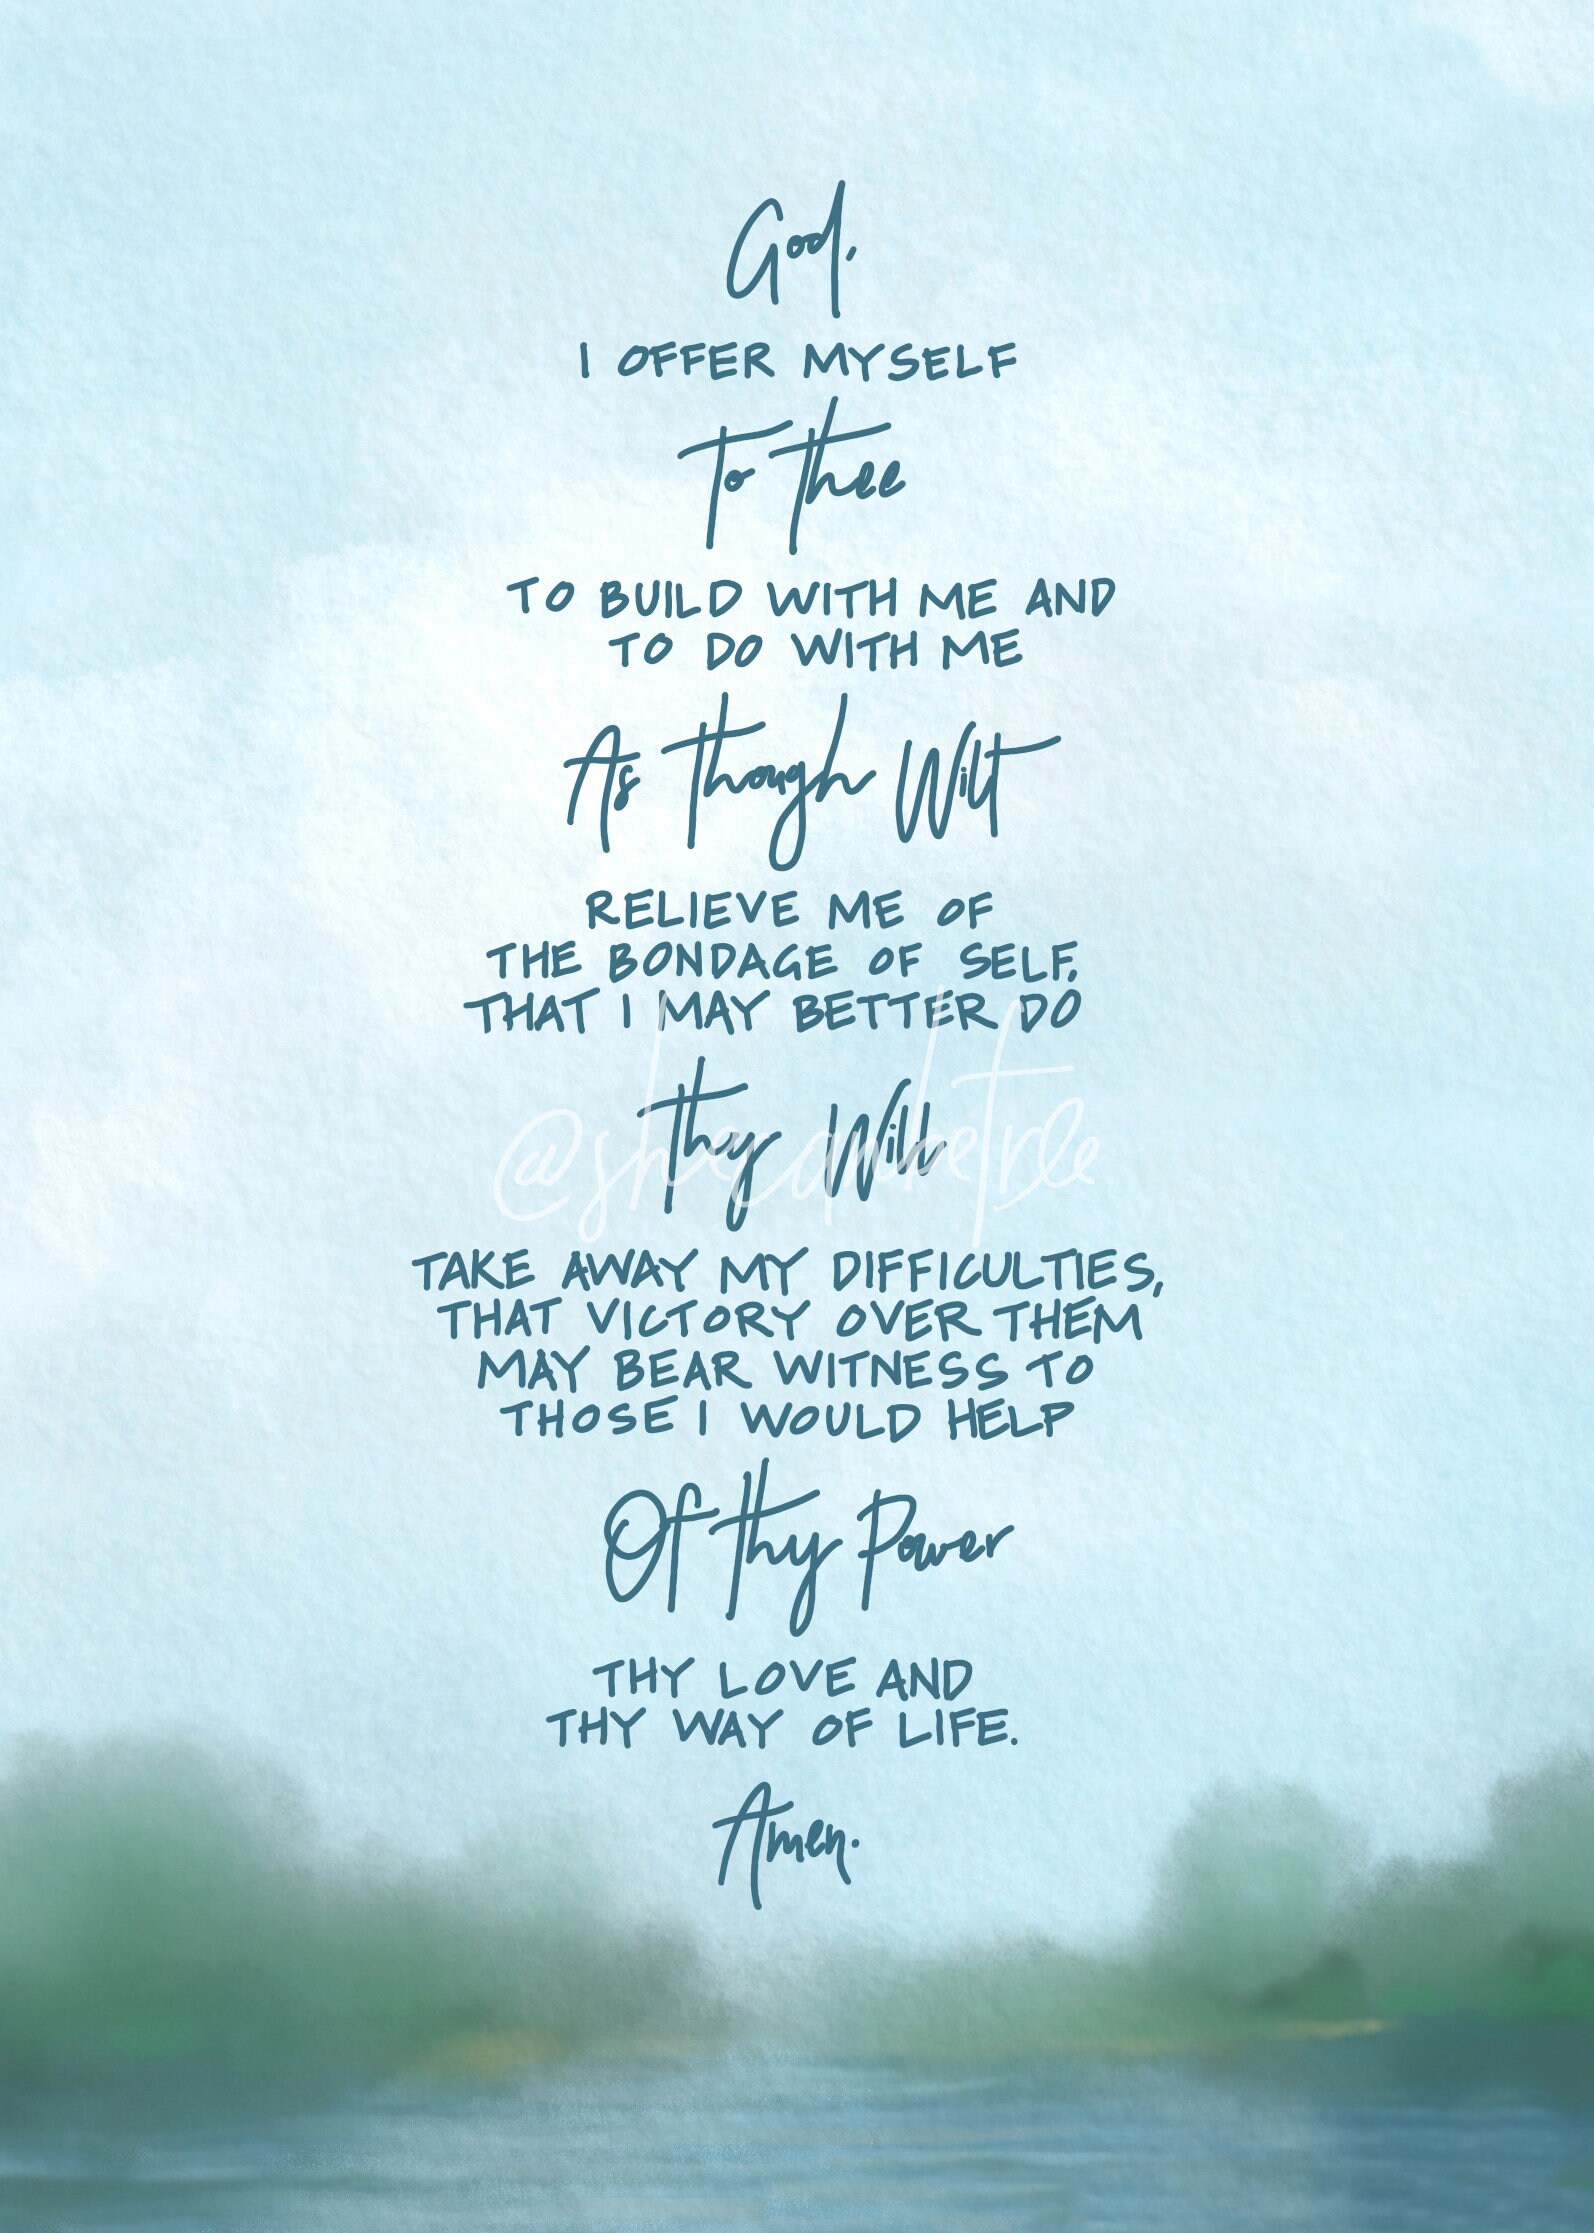 God,
I OFFER MYSELF
To Thee
TO BUILD WITH ME AND
TO DO WITH ME
As Though Wilt
RELIEVE ME OF
THE BONDAGE OF SELF,
THAT I MAY BETTER DO
Thy Will
TAKE AWAY MY DIFFICULTIES,
THAT VICTORY OVER THEM
MAY BEAR WITNESS TO
THOSE I WOULD HELP
Of Thy Power
THY LOVE AND
THY WAY OF LIFE.
Amen.